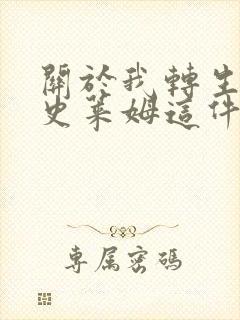 關於我轉生
史萊姆這件
專属密碼